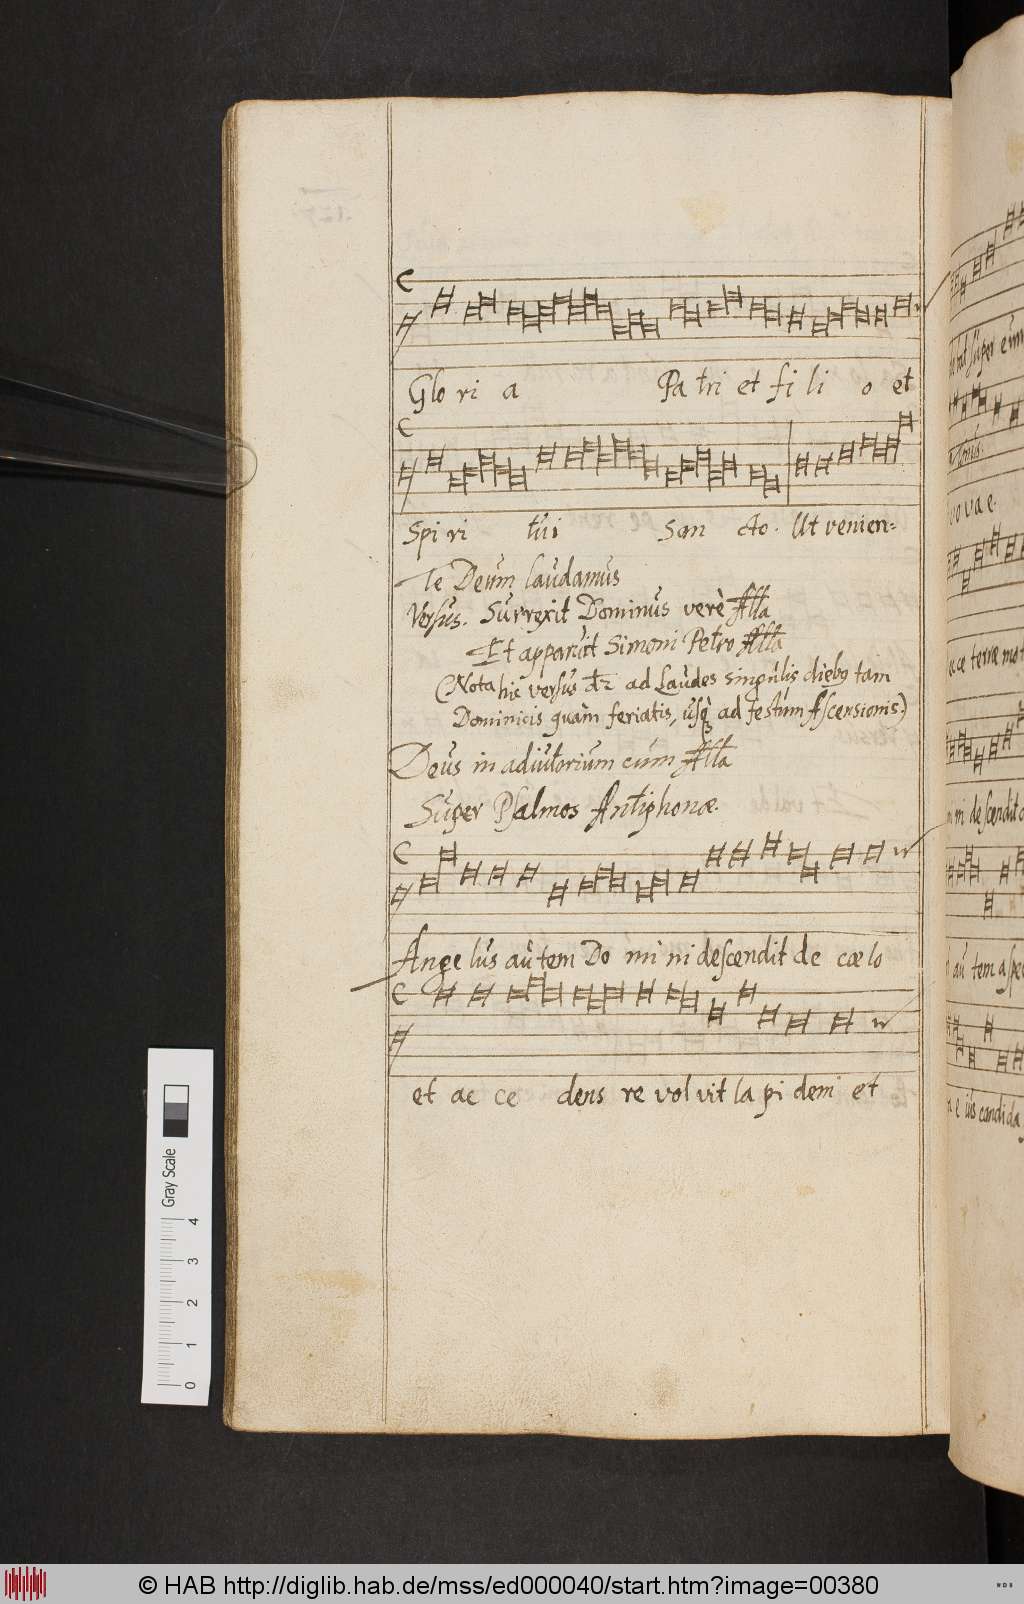 Glo ri a Pa tri et fi li o et
Spi ri tui San cto. Ut venien=
Te Deum laudamus
Versus. Surrexit Dominus verè Alla
Et apparuit Simoni Petro Alla
(Nota hic versus dr ad Laudes singulis diebg tam
Dominicis quàm feriatis, usq ad festum Ascensionis.)
Deus in adiutorium cum Alla
Super Psalmos Antiphonæ.
Ange lus au tem Do mi ni descendit de cœ lo
et ac ce dens re vol vit la pi dem et
ad super eum
vovae.
ce terræ mot
ni descendit
au tem aspe
e ius candida
Gray Scale
4
3
2
1
0
© HAB http://diglib.hab.de/mss/ed000040/start.htm?image=00380